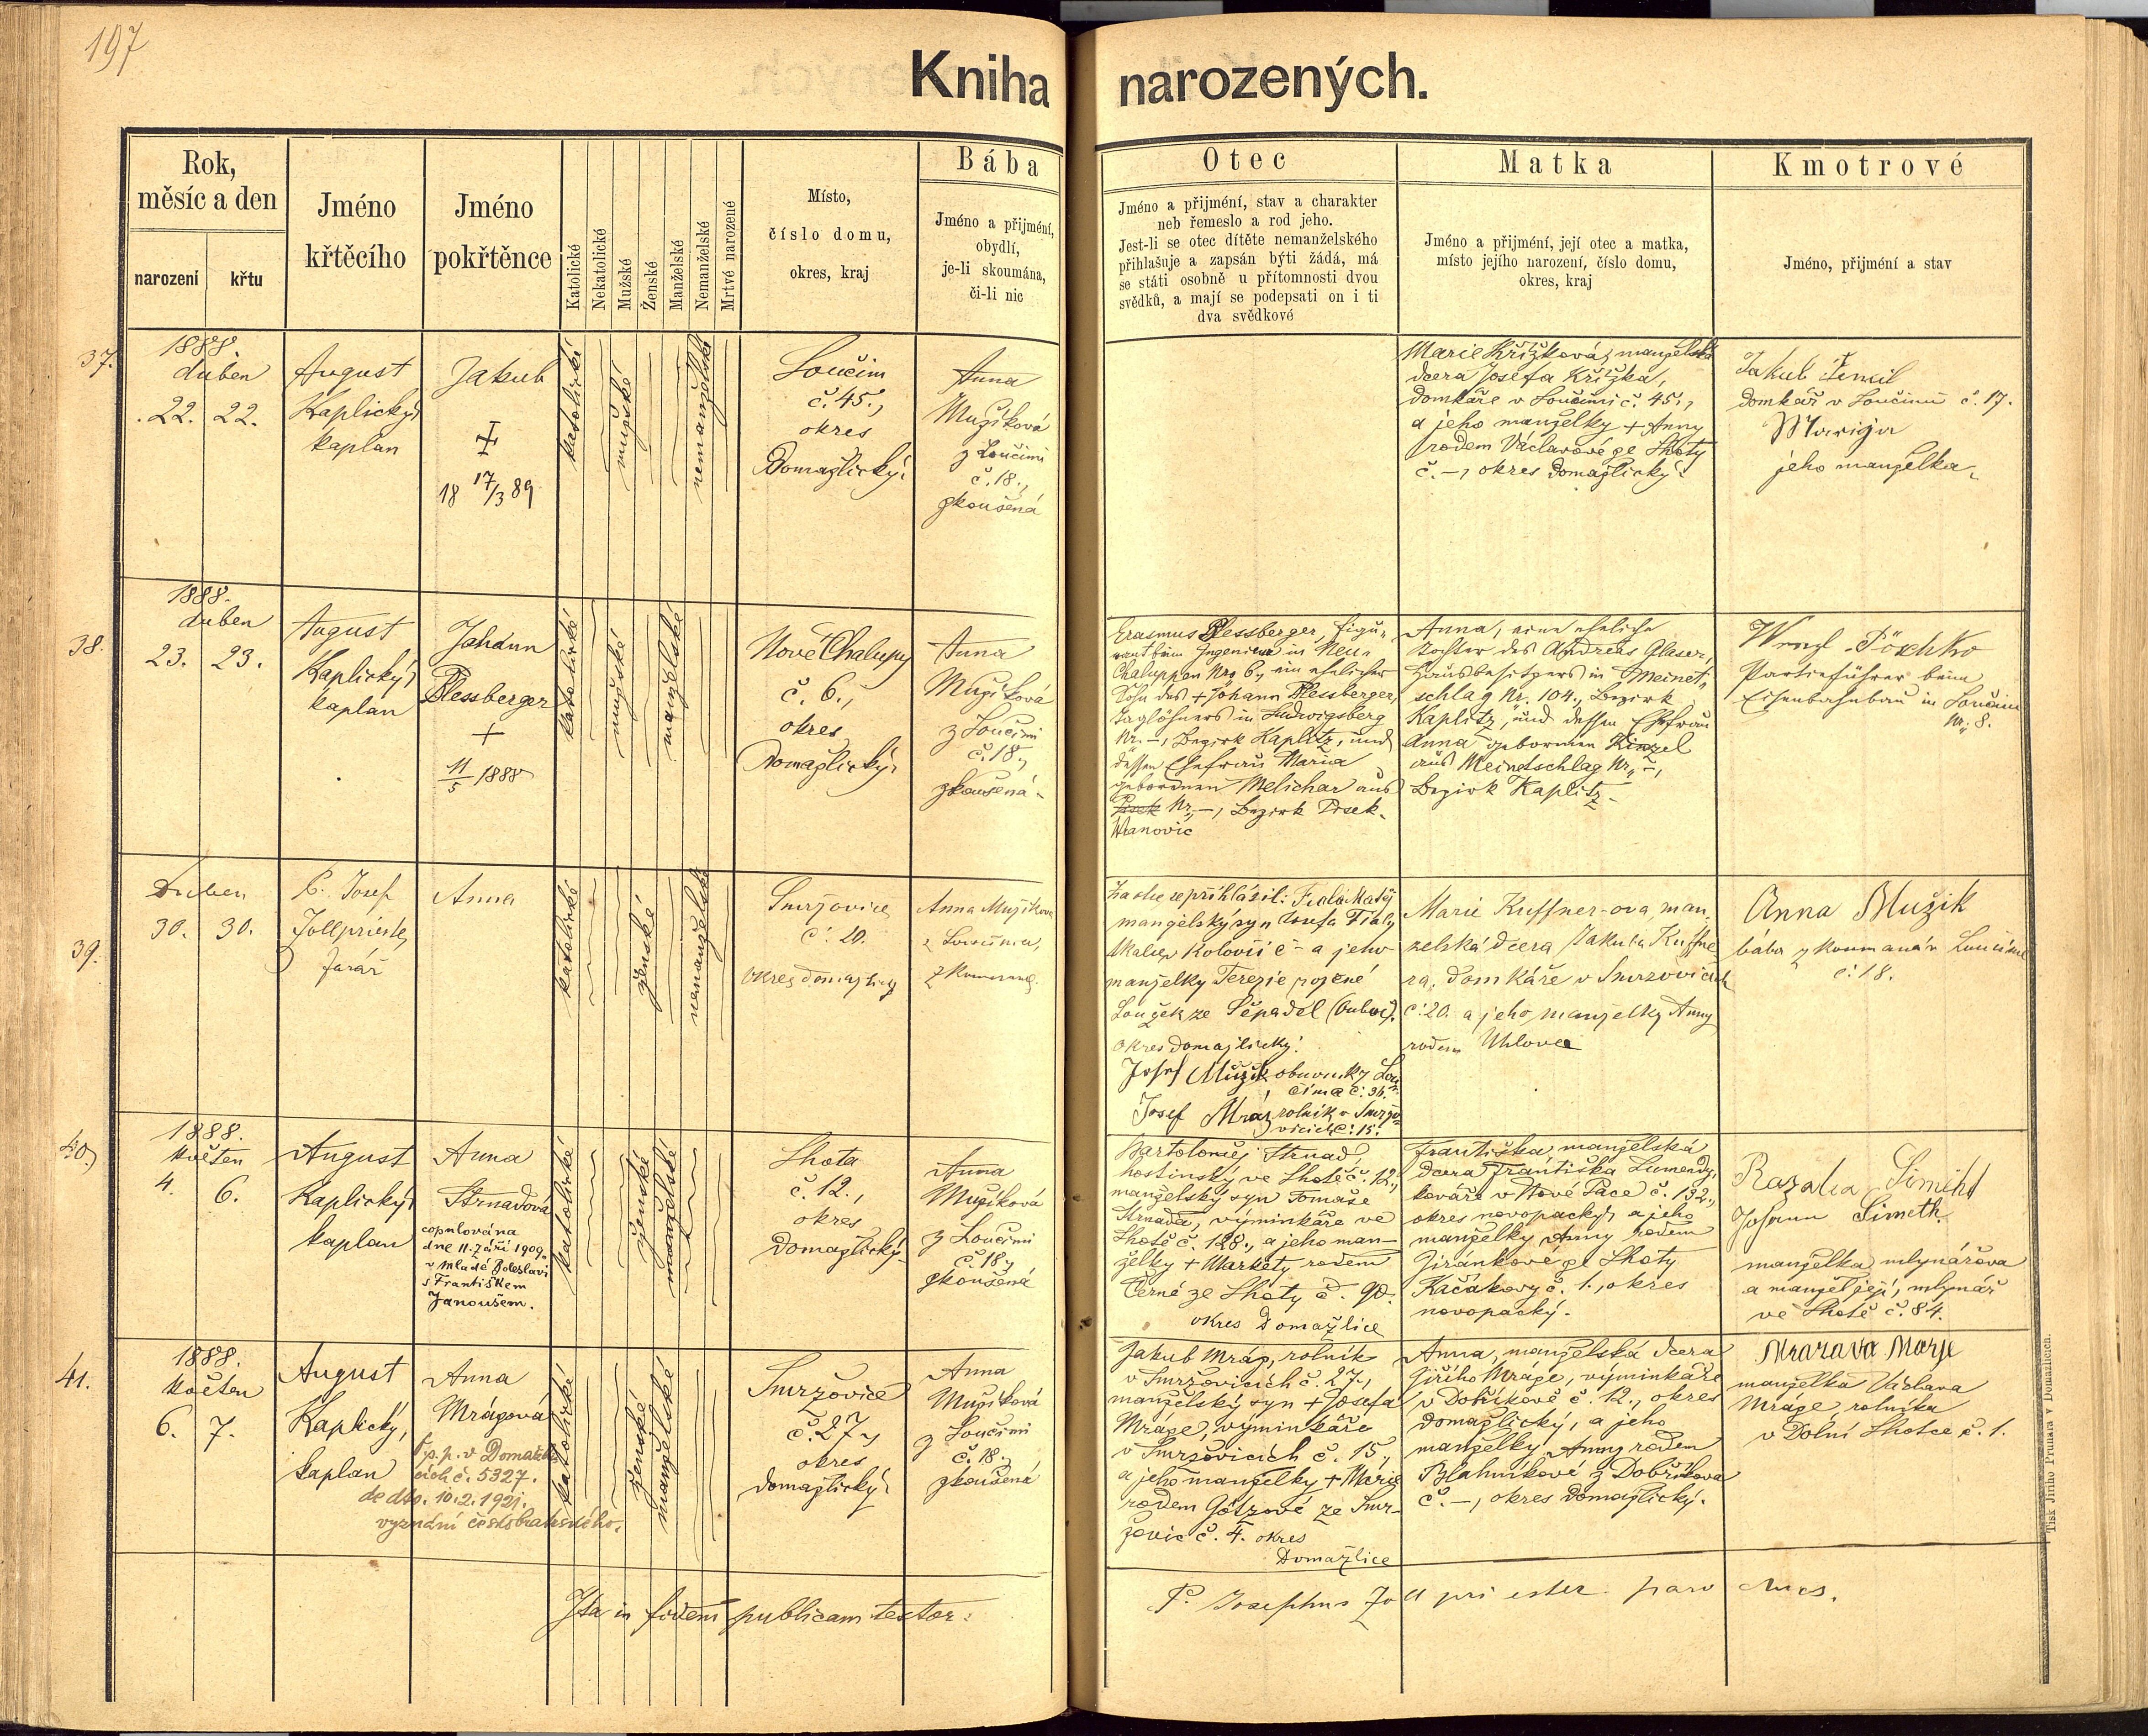 197
Kniha narozených.
Rok,
měsíc a den
narození
křtu
Jméno
křtěcího
Jméno
pokřtěnce
Katolické
Nekatolické
Mužské
Ženské
Manželské
Nemanželské
Mrtvě narozené
Místo,
číslo domu,
okres, kraj
Bába
Jméno a přijmění,
obydlí,
je-li skoumána,
či-li nic
Otec
Jméno a přijmění, stav a charakter
neb řemeslo a rod jeho.
Jest-li se otec dítěte nemanželského
přihlašuje a zapsán býti žádá, má
se státi osobně u přítomnosti dvou
svědků, a mají se podepsati on i ti
dva svědkové
Matka
Jméno a přijmění, její otec a matka,
místo jejího narození, číslo domu,
okres, kraj
Kmotrové
Jméno, přijmění a stav
37.
1888.
duben
22. 22.
August
Kaplický,
kaplan
Jakub
+
18 17/3 89
katolické
mužské
nemanželské
Loučim
č. 45.,
okres
Domažlický.
Anna
Mužíková
z Loučimi
č. 18.,
zkoušená
Marie Křížková, manželská
dcera Josefa Křížka,
domkáře v Loučimi č. 45.,
a jeho manželky + Anny
rodem Václavové ze Lhoty
č. –, okres Domažlický.
Jakub
domkář v Loučimi č. 17.
Marija
jeho manželka.
38.
1888.
duben
23. 23.
August
Kaplický,
kaplan
Johann
Plessberger
+
11/5 1888
katolické
mužské
manželské
Nové Chalupy
č. 6.,
okres
Domažlický.
Anna
Mužíková
z Loučimi
č. 18.,
zkoušená.
Erasmus Plessberger, Figu-
rant beim Ingenieur in Neu-
Chaluppen Nro 6, ein ehelicher
Sohn des + Johann Plessberger,
Taglöhners in Ludwigsberg
Nr. –, Bezirk Kaplitz, und
dessen Ehefrau Maria
gebornen Melichar aus
Nr. –, Bezirk Pisek.
Wanovic
Anna, eine eheliche
Tochter des Andreas Glaser,
Hausbesitzers in Meinet-
schlag Nr. 104., Bezirk
Kaplitz, und dessen Ehefrau
Anna gebornen Kinzel
aus Meinetschlag Nr. –,
Bezirk Kaplitz.
Wenzl Pöschko
Partieführer beim
Eisenbahnbau in Loučim
Nr. 8.
39.
Duben
30. 30.
P. Josef
Zollpriester,
farář
Anna
katolické
ženské
nemanželské
Smržovice
č. 20.
okres domažlický
Anna Mužíkova
z Loučima,
Za otce se přihlásil: Fiala Matěj
manželský syn Josefa Fialy
a jeho
manželky Terezie rozené
Loužek ze Štěpadel
okres domažlický.
Josef Mužík obuvník z Lou-
čima č. 36.
Josef Mráz rolník v Smržo-
vicích č. 15.
Marie Kuffner-ova, man-
želská dcera Jakuba Kuffne-
ra, domkáře v Smržovicích
č. 20. a jeho manželky Anny
rodem Uhlove
Anna Mužik
bába zkoumaná v Loučimě
č. 18.
40.
1888.
Květen
4. 6.
August
Kaplický,
kaplan
Anna
Strnadová
copulována
dne 11. září 1909.
v Mladé Boleslavi
s Františkem
Janoušem.
katolické
ženské
manželské
Lhota
č. 12.,
okres
Domažlický.
Anna
Mužíková
z Loučimi
č. 18.,
zkoušená
Bartoloměj Strnad,
hostinský ve Lhotě č. 12.,
manželský syn Tomáše
Strnada, výminkáře ve
Lhotě č. 128., a jeho man-
želky + Markéty rodem
Černé ze Lhoty č. 90.
okres Domažlice
Františka, manželská
dcera Františka Lumendy,
kováře v Nové Pace č. 132.,
okres novopacký, a jeho
manželky Anny rodem
Jiránkové ze Lhoty
Kačákovy č. 1., okres
novopacký.
Rozalia Simeth
Johann Simeth.
manželka mlynářova
a manžel její, mlynář
ve Lhotě č. 84.
41.
1888.
Květen
6. 7.
August
Kaplický,
kaplan
Anna
Mrázová
č. 5327.
de dto. 10.2.1921.
vyznání českobratrského.
katolické
ženské
manželské
Smržovice
č. 27.,
okres
domažlický.
Anna
Mužíková
z Loučimi
č. 18.,
zkoušená
Jakub Mráz, rolník
v Smržovicích č. 27.,
manželský syn + Josefa
Mráze, výminkáře
v Smržovicích č. 15.,
a jeho manželky + Marie
rodem Götzové ze Smr-
žovic č. 4. okres
Domažlice
Anna, manželská dcera
Jiřího Mráze, výminkáře
v Dobříkově č. 12., okres
domažlický, a jeho
manželky Anny rodem
Blahníkové z Dobříkova
č. –, okres Domažlický.
Mrazava Marje
manželka Václava
Mráze, rolníka
v Dolní Lhotce č. 1.
Ita in fidem publicam testor:
P. Josephus Zollpriester parochus.
Tisk Jiřího Prunara v Domažlicích.